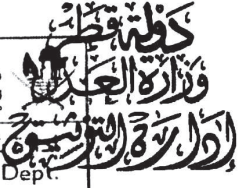 دولة قطر
وزارة العدل
إدارة التوثيق
Dept.